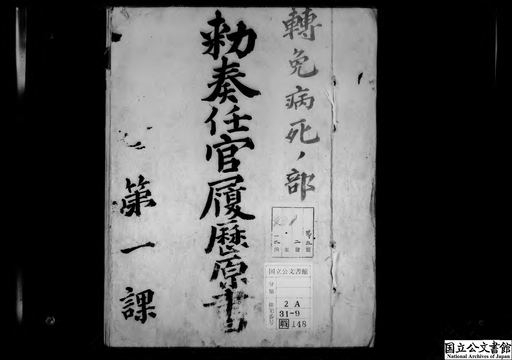 轉免病死ノ部
勅奏任官履歴原書
第一課
国立公文書館
分類
排架番号
2 A
31-9
148
国立公文書館
National Archives of Japan